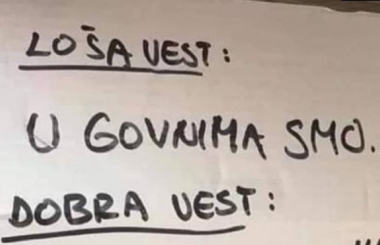 LOŠA VEST:
U GOVNIMA SMO.
DOBRA VEST: